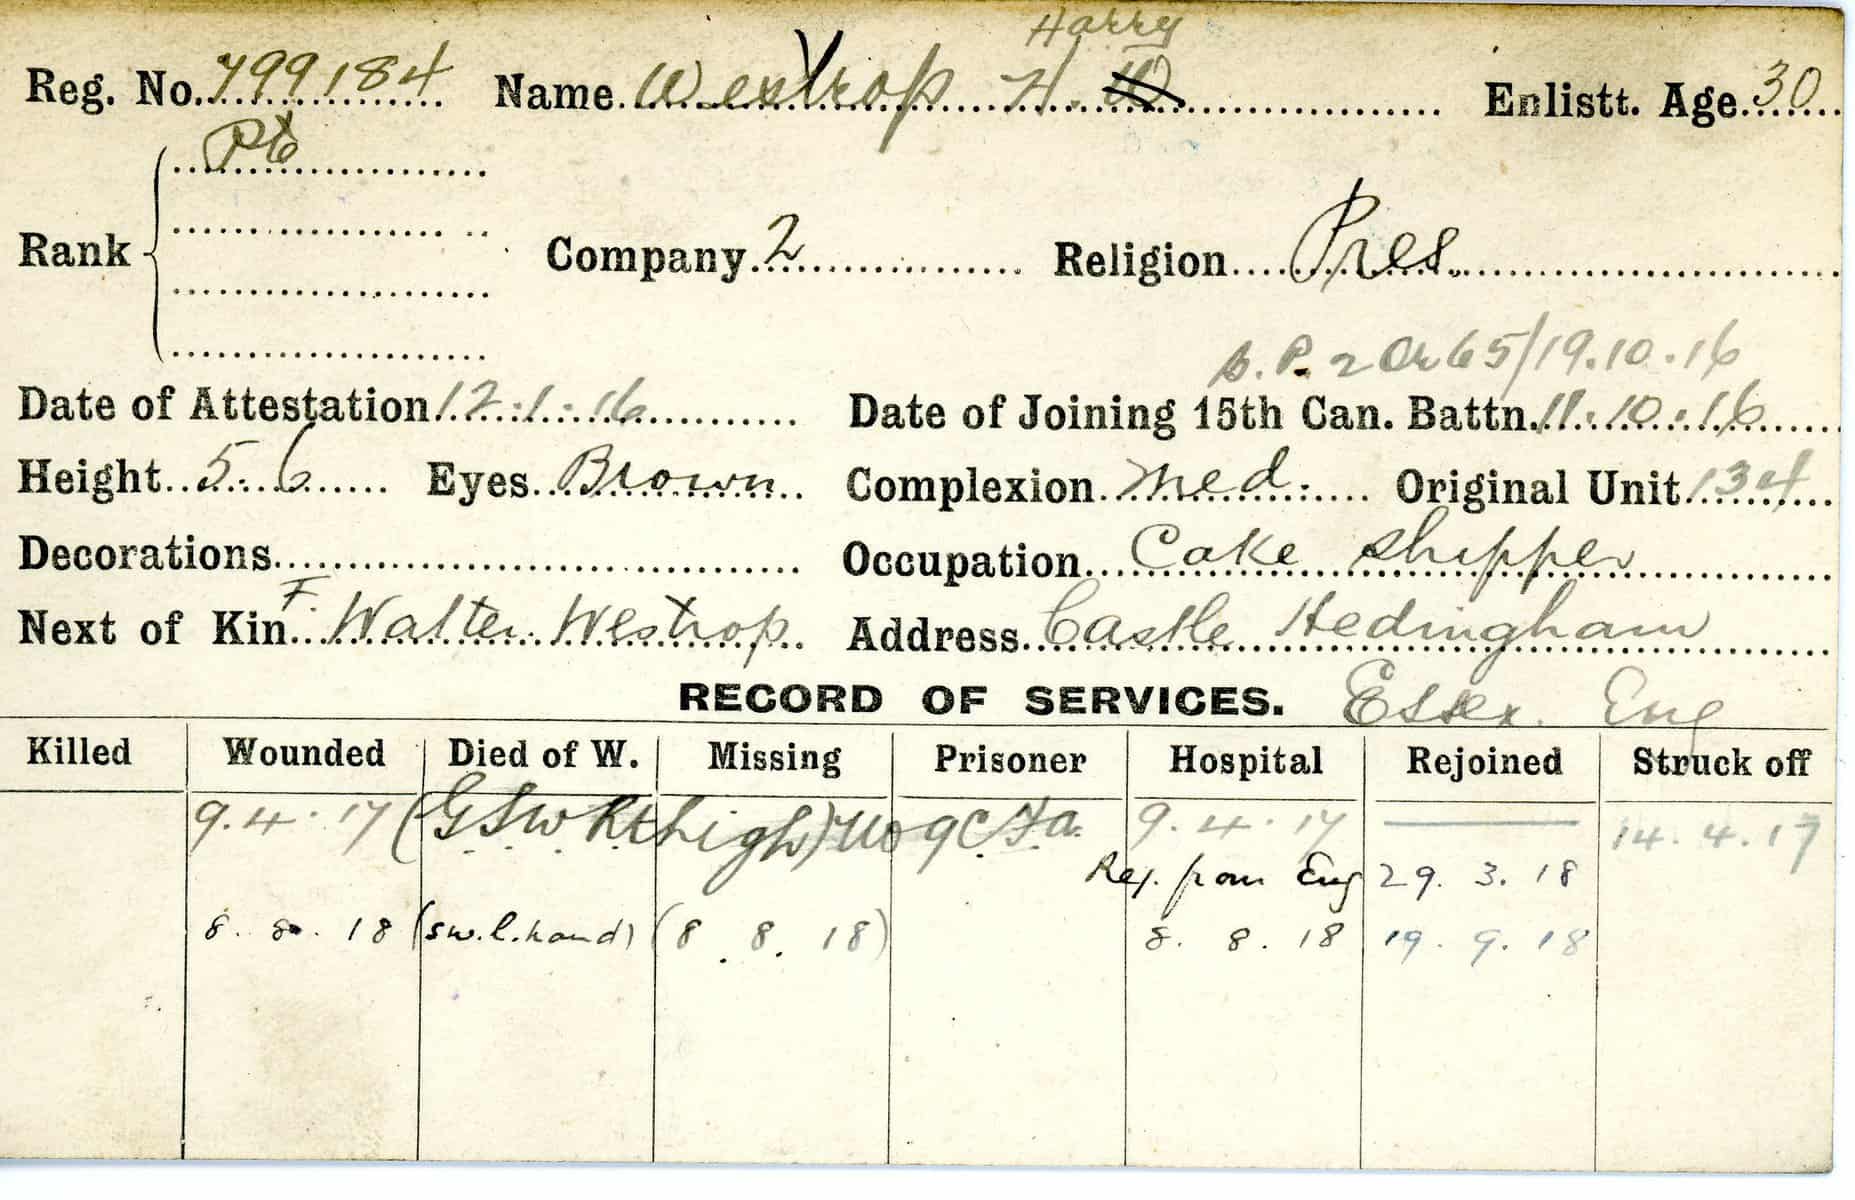 Harry
Reg. No. 799184 Name Westrop H. W Enlistt. Age 30
Pte
Rank Company 2 Religion Pres.
2 65/19.10.16
Date of Attestation 12.1.16 Date of Joining 15th Can. Battn. 11.10.16
Height 5.6 Eyes Brown Complexion Med. Original Unit 134
Decorations Occupation Cake Shipper
Next of Kin F. Walter Westrop Address Castle Hedingham
RECORD OF SERVICES. Essex. Eng
Killed Wounded Died of W. Missing Prisoner Hospital Rejoined Struck off
9.4.17 (GSW Rt thigh) to 9 C.F.a. 9.4.17 — 14.4.17
Rej. from Eng 29.3.18
8.8.18 (sw.l.hand) (8.8.18) 8.8.18 19.9.18